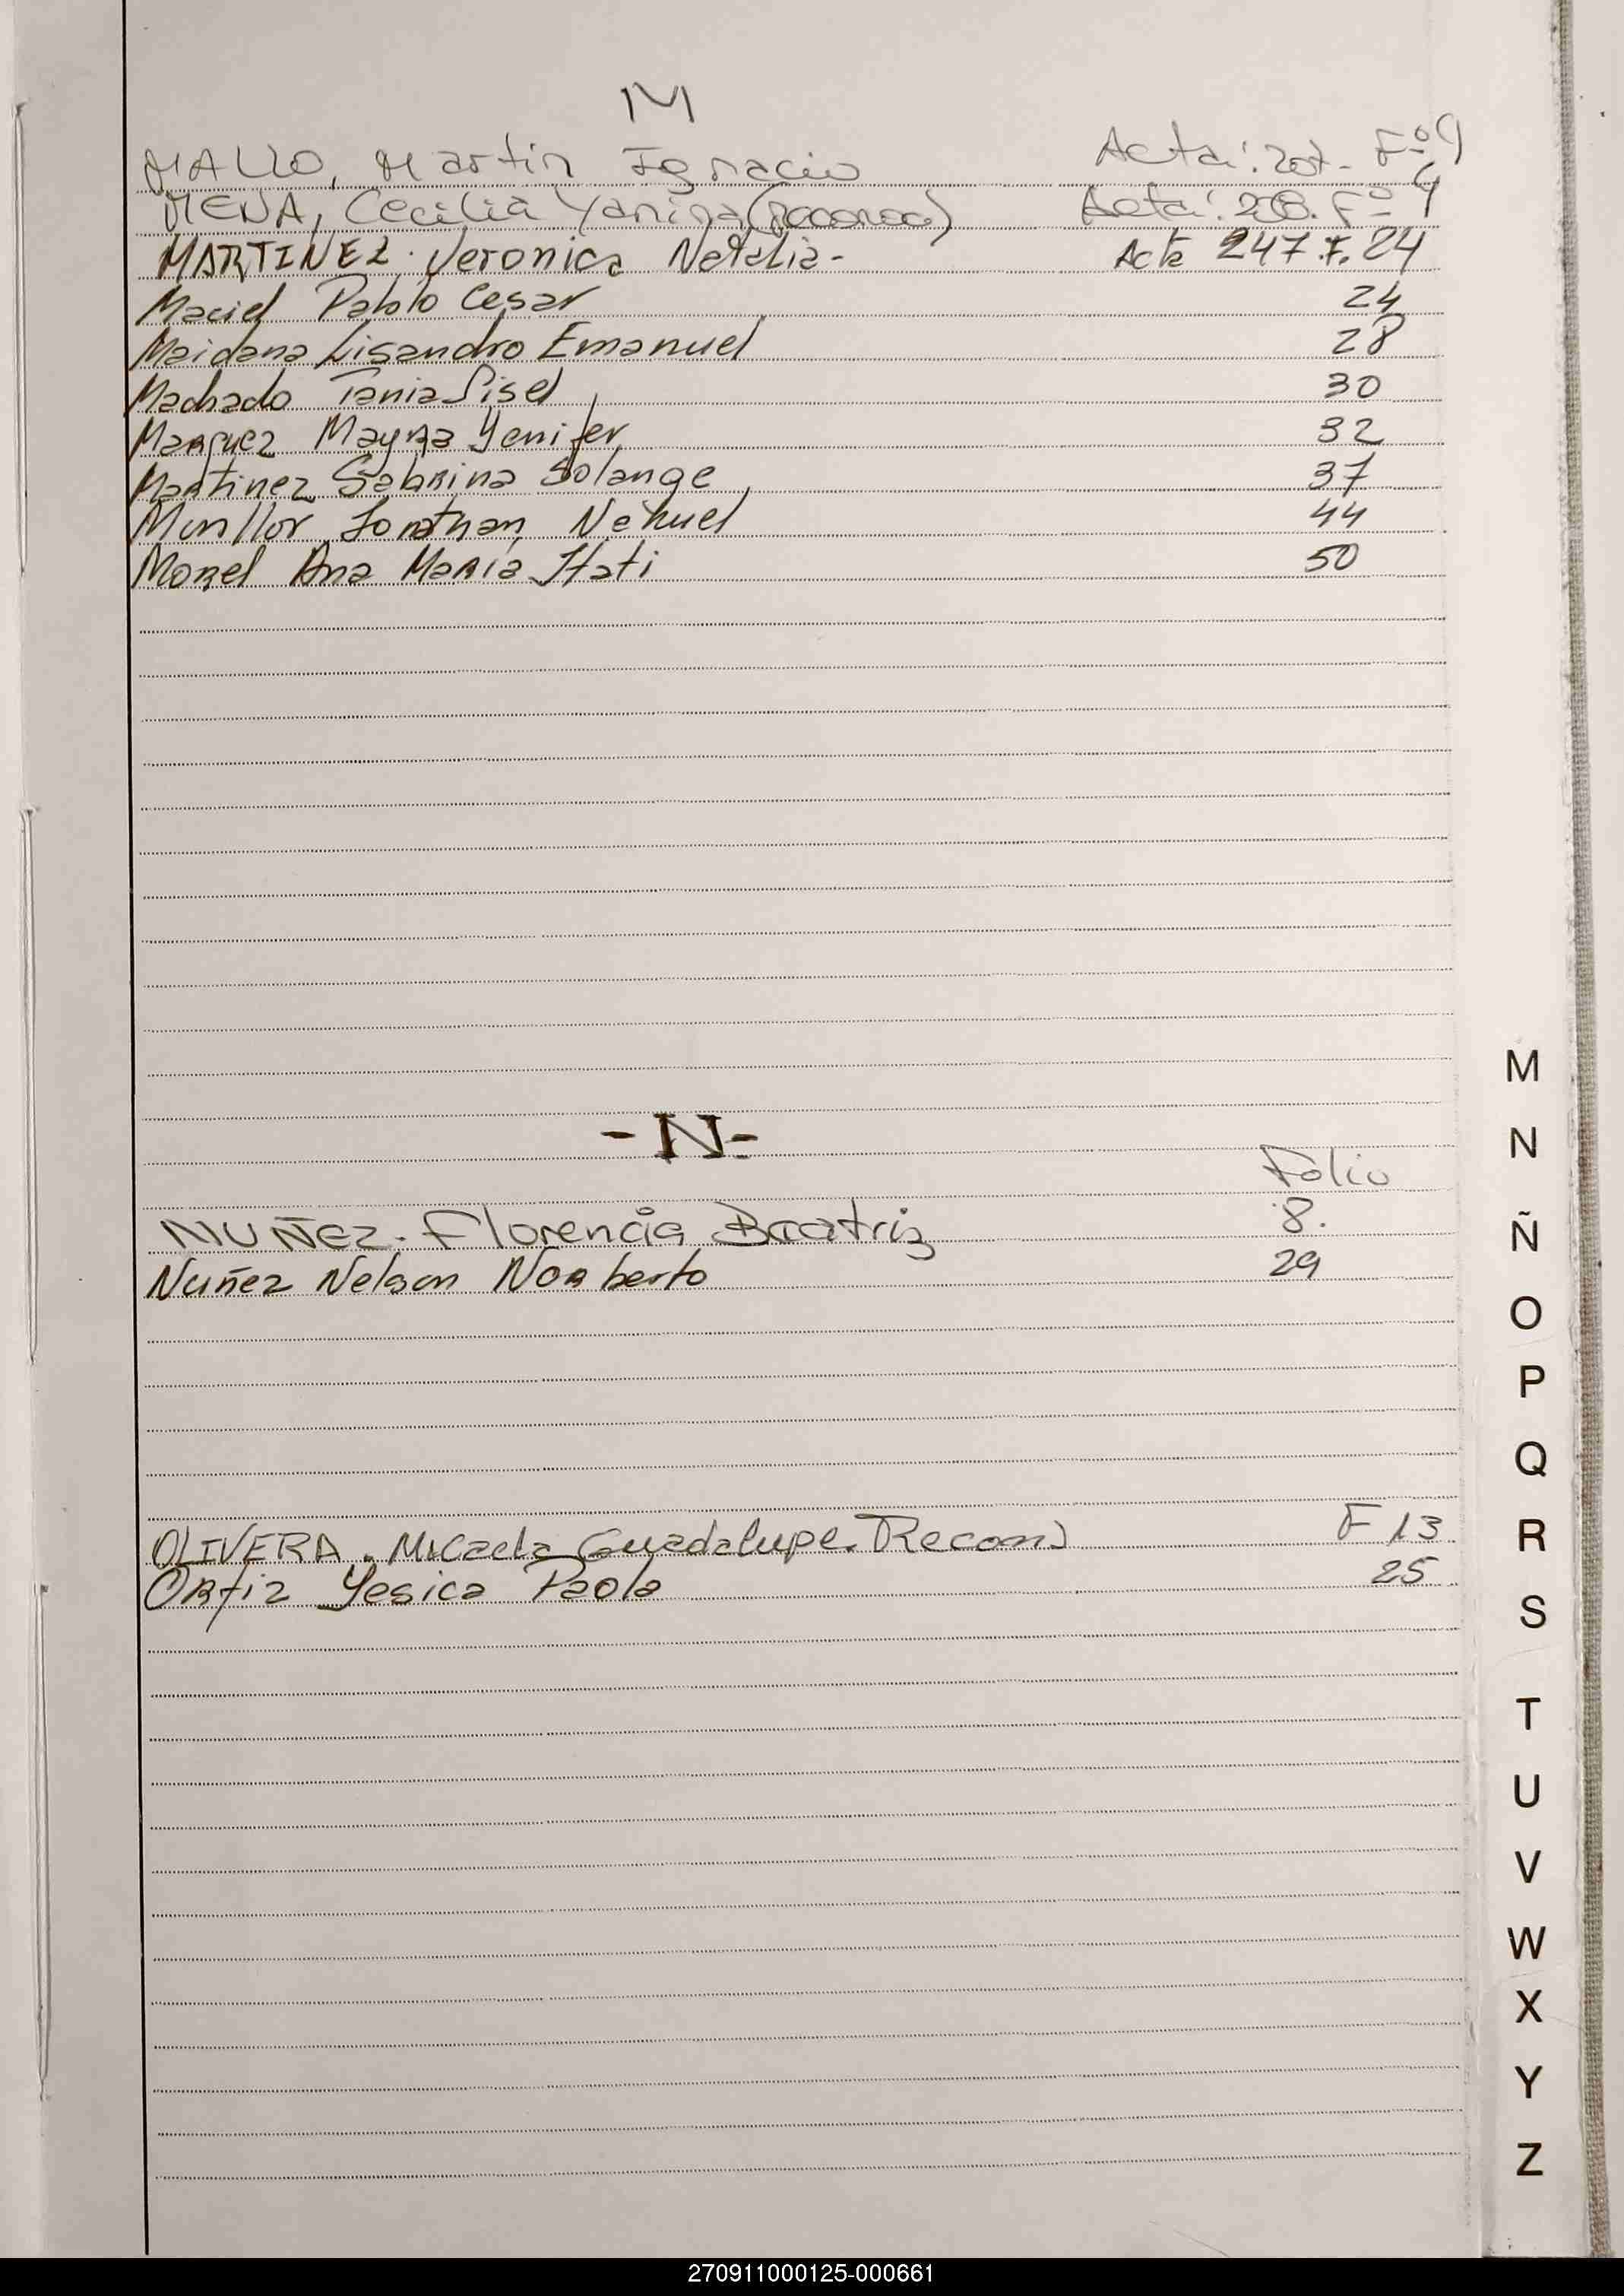 M
MALLO, Martin Ignacio Acta: 207- Fº 9
MENA, Cecilia Yanina Acta: 208. Fº 9
MARTINEZ. Veronica Natalia- Acta 247 F. 24
Maciel Pablo Cesar 24
Maidana Lisandro Emanuel 28
Machado Tania Gisel 30
Marquez Mayra Yenifer 32
Martinez Sabrina Solange 37
Jonathan Nehuel 44
Morel Ana Maria Itati 50
- N -
Folio
NUÑEZ. Florencia Beatriz 8.
Nuñez Nelson Norberto 29
OLIVERA. Micaela Guadalupe. (Recon) F 13
Ortiz Yesica Paola 25
M
N
Ñ
O
P
Q
R
S
T
U
V
W
X
Y
Z
270911000125-000661